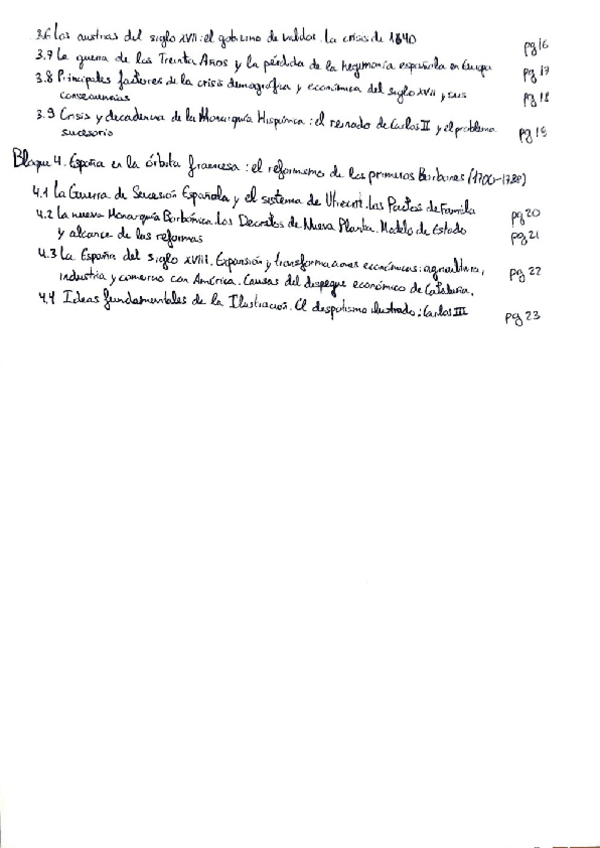 3.6 Los austrias del siglo XVII: el gobierno de validos. La crisis de 1640 pg 16
3.7 La guerra de los Treinta Años y la pérdida de la hegemonía española en Europa pg 17
3.8 Principales factores de la crisis demográfica y económica del siglo XVII y sus pg 18
consecuencias
3.9 Crisis y decadencia de la Monarquía Hispánica: el reinado de Carlos II y el problema pg 19
sucesorio
Bloque 4. España en la órbita francesa: el reformismo de los primeros Borbones (1700-1788)
4.1 La Guerra de Sucesión Española y el sistema de Utrecht. Los Pactos de Familia pg 20
4.2 La nueva Monarquía Borbónica. Los Decretos de Nueva Planta. Modelo de Estado pg 21
y alcance de las reformas
4.3 La España del siglo XVIII. Expansión y transformaciones económicas: agricultura, pg 22
industria y comercio con América. Causas del despegue económico de Cataluña.
4.4 Ideas fundamentales de la Ilustración. El despotismo ilustrado: Carlos III pg 23